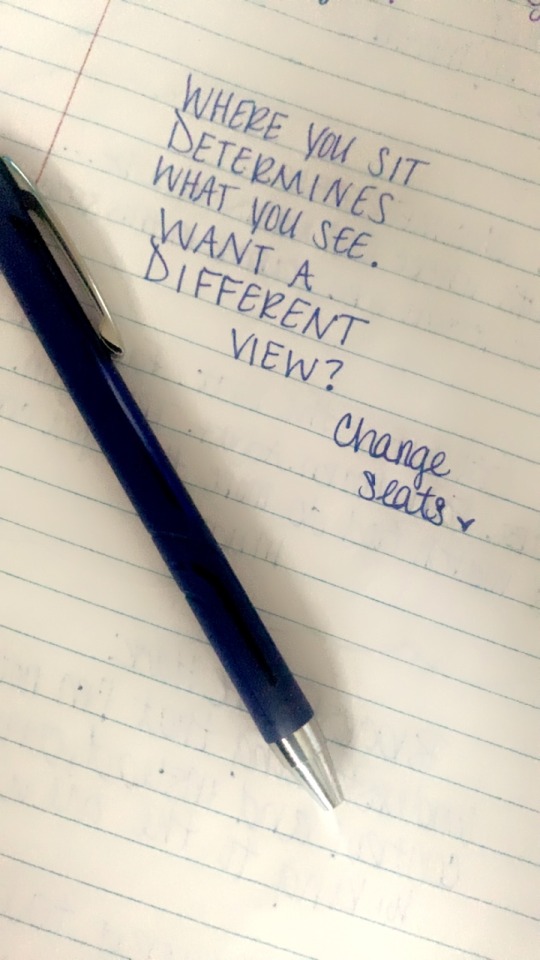 WHERE YOU SIT
DETERMINES
WHAT YOU SEE.
WANT A
DIFFERENT
VIEW?
Change
seats